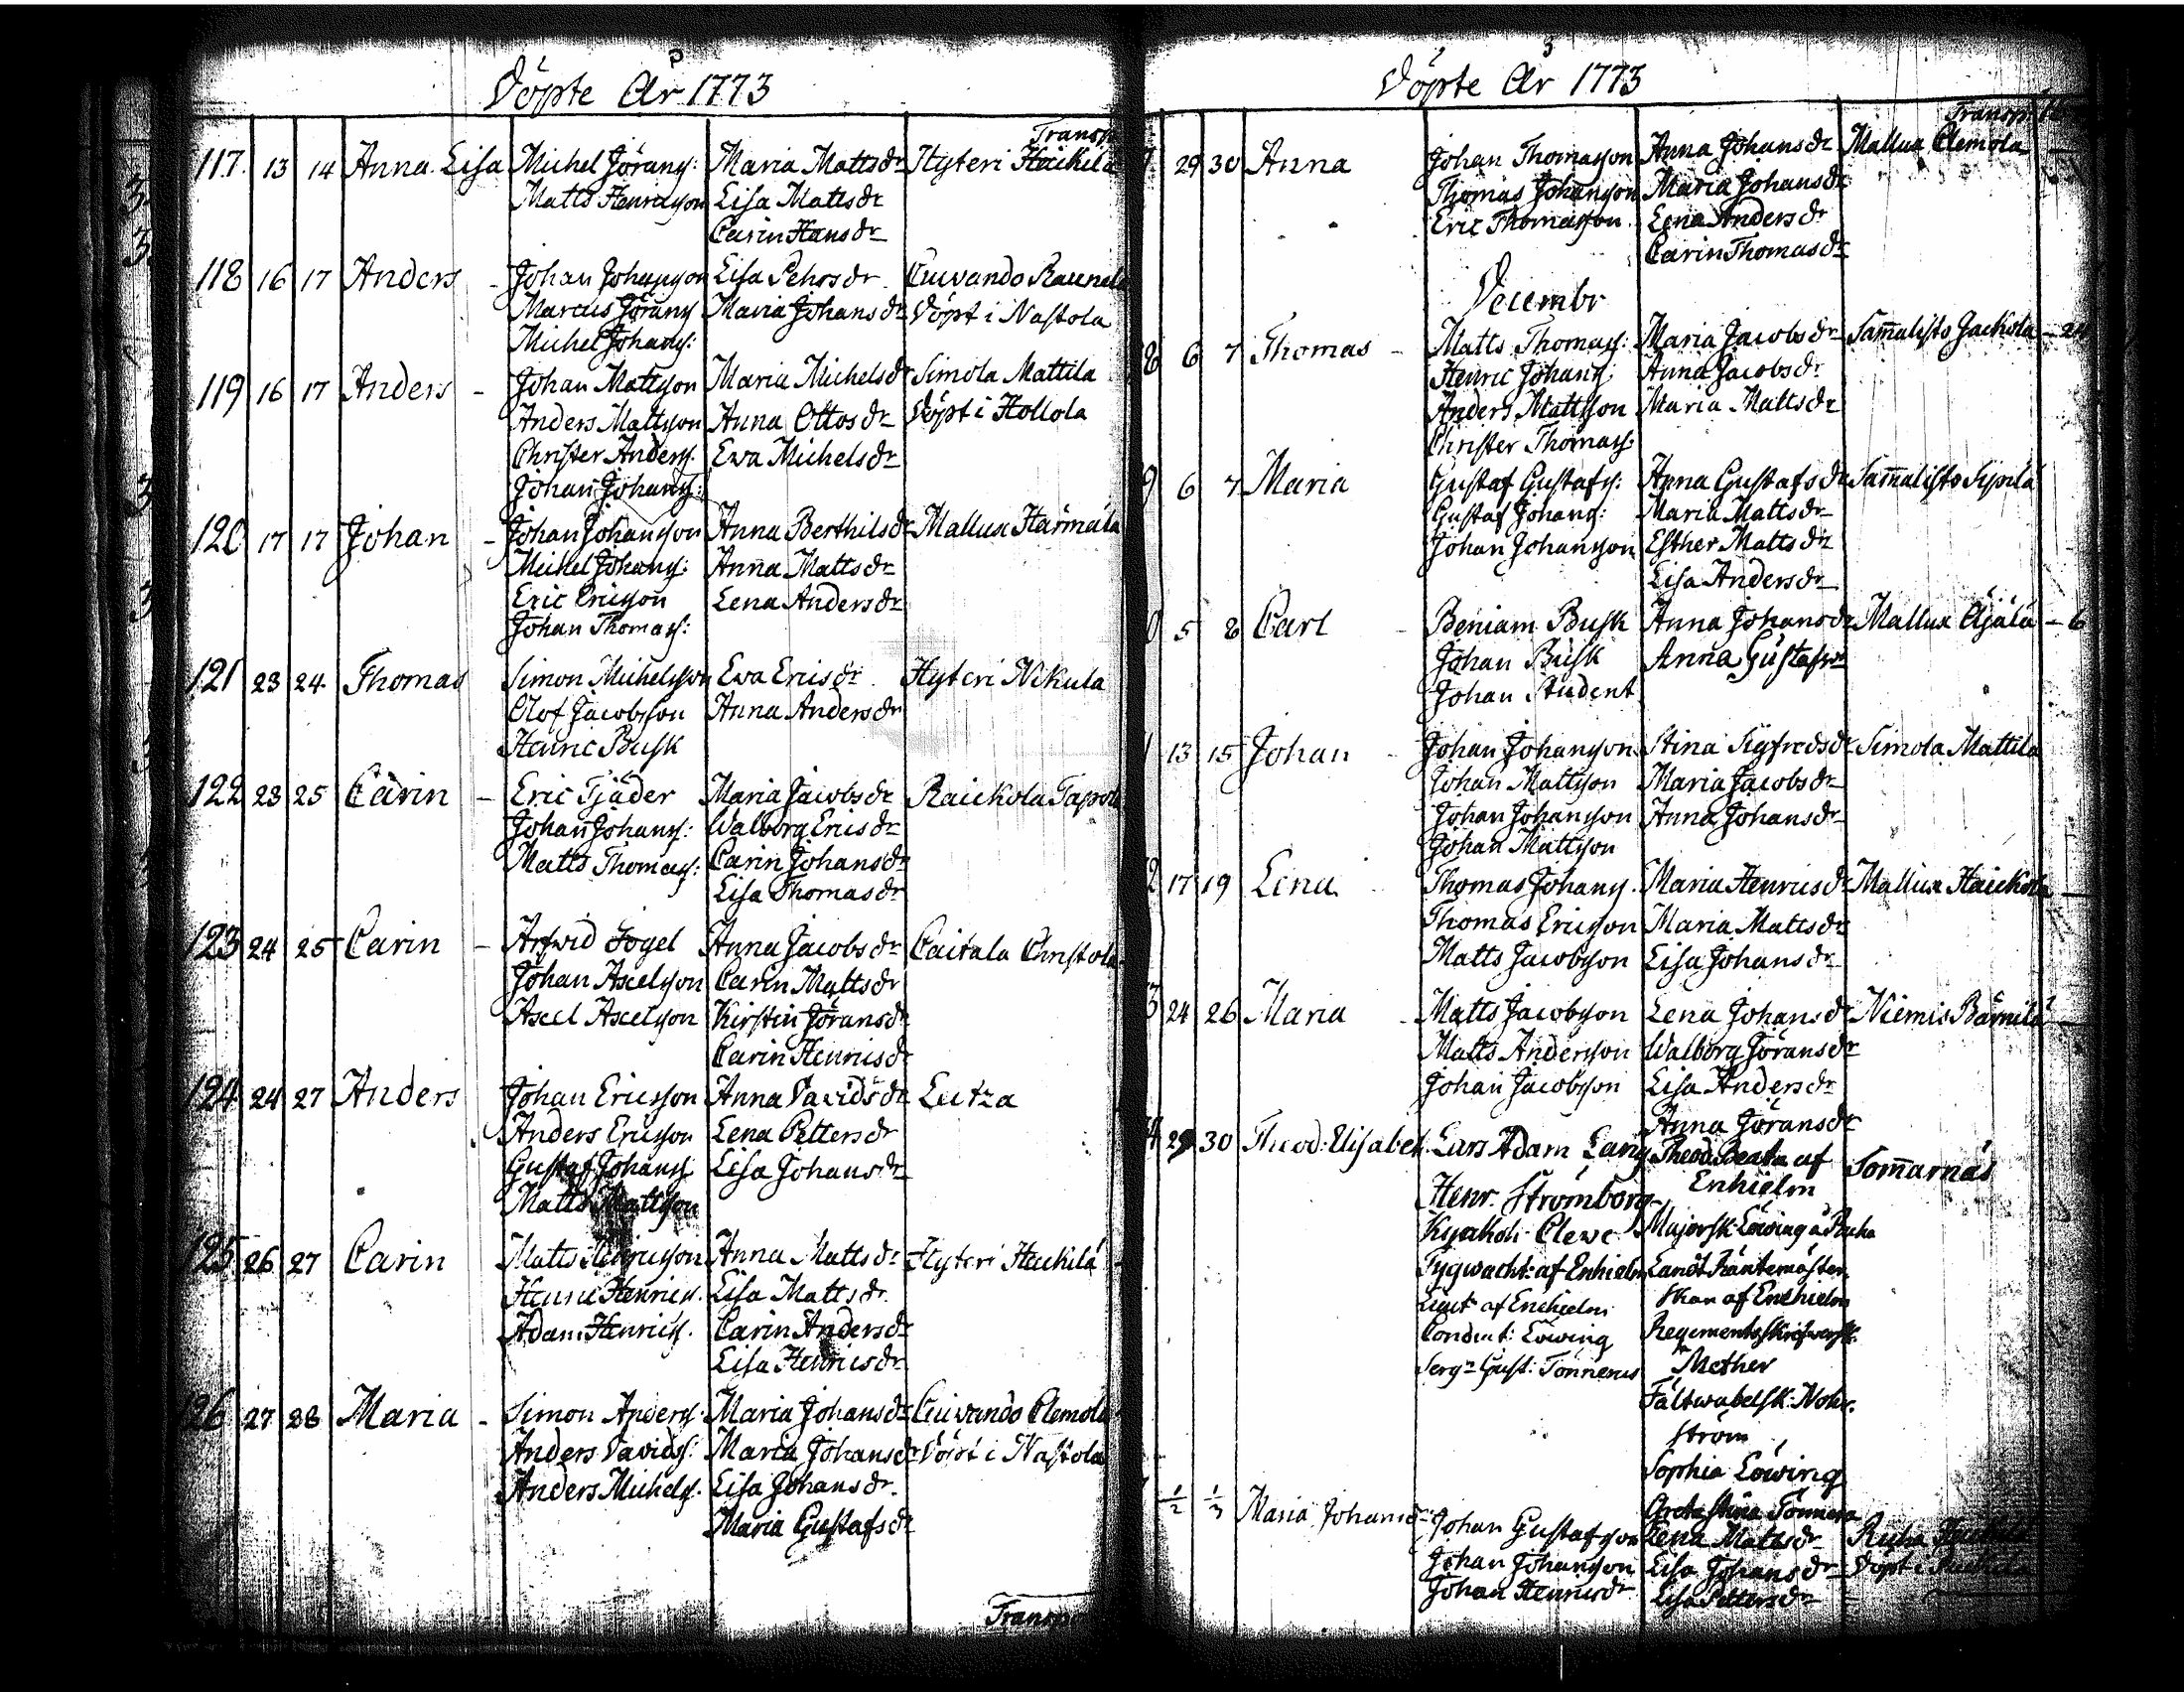 Döpte År 1773
Transp
117. 13 14 Anna Lisa Michel Jörans: Maria Matts dr Hyteri Heickilä
Matts Henricsson Lisa Matts dr
Carin Hans dr
118 16 17 Anders - Johan Johansson Lisa Pehrs dr Cuivando
Marcus Jörans Maria Johans dr Döpt i Nastola
Michel Johans:
119 16 17 Anders - Johan Mattsson Maria Michels dr Simola Mattila
Anders Mattsson Anna Ottos dr Döpt i Hollola
Christer Anders. Ewa Michels dr
Johan Johans:
120 17 17 Johan - Johan Johansson Anna Berthils dr Mallusa Härmälä
Michel Johans: Anna Matts dr
Eric Ericsson Lena Anders dr
Johan Thomas:
121 23 24. Thomas Simon Michelsson Ewa Erics dr Hyteri Nikula
Olof Jacobsson Anna Anders dr
Henric Busk
122 23 25 Carin - Eric Tjäder Maria Jacobs dr Raickola
Johan Johans: Walborg Erics dr
Matts Thomas: Carin Johans dr
Lisa Thomas dr
123 24 25 Carin - Arfwid Fogel Anna Jacobs dr Caitala Christola
Johan Axelsson Carin Matts dr
Axel Axelsson Kirstin Jörans dr
Carin Henrics dr
124 24 27 Anders Johan Ericsson Anna Davids dr Lutza
Anders Ericsson Lena Petters dr
Gustaf Johans Lisa Johans dr
Matts Mattsson
125 26 27 Carin Matts Anna Matts dr Hyteri Heickilä
Henric Henrics. Lisa Matts dr
Adam Henrics. Carin Anders dr
Lisa Henrics dr
126 27 28 Maria - Simon Anders: Maria Johans dr Cuivando Clemola
Anders Davids: Maria Johans dr Döpt i Nastola
Anders Michels. Lisa Johans dr.
Maria Gustafs dr
Transp
Döpte År 1773
Transp:
29 30 Anna Johan Thomasson Anna Johans dr Mallusa Clemola
Thomas Johansson Maria Johans dr
Eric Thomasson Lena Anders dr
Carin Thomas dr
Decembr
8 6 7 Thomas - Matts Thomas: Maria Jacobs dr Sam̄alisto Jackola - 24
Henric Johans: Anna Jacobs dr
Anders Mattsson Maria Matts dr
Christer Thomas:
9 6 7 Maria Gustaf Gustafs: Anna Gustafs dr Sam̄alisto Sipilä
Gustaf Johans: Maria Matts dr
Johan Johansson Esther Matts dr
Lisa Anders dr
0 5 8 Carl - Beniam Busk Anna Johans dr Mallusa Ojala - 6
Johan Busk Anna Gustafs dr
Johan Student
1 13 15 Johan Johan Johansson Stina Sigfreds dr Simola Mattila
Johan Mattsson Maria Jacobs dr
Johan Johansson Anna Johans dr
Johan Mattsson
2 17 19 Lena Thomas Johans. Maria Henrics dr Mallusa Haickola
Thomas Ericsson Maria Matts dr
Matts Jacobsson Lisa Johans dr
3 24 26 Maria - Matts Jacobsson Lena Johans dr Niemis
Matts Andersson Walborg Jörans dr
Johan Jacobsson Lisa Anders dr
Anna Jörans dr
4 29 30 Theod: Elisabet Lars Adam Lang Theod. Beata af Som̄arnäs
Enhielm
Henr. Strömborg
Kyrkoh: Clewe Majorsk: Löwing
Tygwacht: af Enhielm Landt Räntemäster
skan af Enehielm
Lieut: af Enehielm
Conduct: Löwing Regementsskrifwersk:
Mether
Serg: Gust: Tönnerus
Fältwäbelsk: Nohr
ström
Sophia Löwing
Greta Stina Tönnera
1/2 1/3 Maria Johans dr Johan Gustafsson Lena Matts dr
Johan Johansson Lisa Johans dr Döpt i
Johan Henrics dr Lisa Petters dr